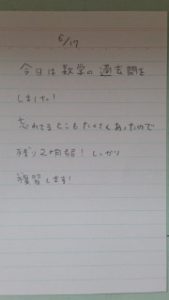 5/17
今日は数学の過去問を
しました!
忘れてるところもたくさんあったので
残り2ヶ月弱!しっかり
復習します!